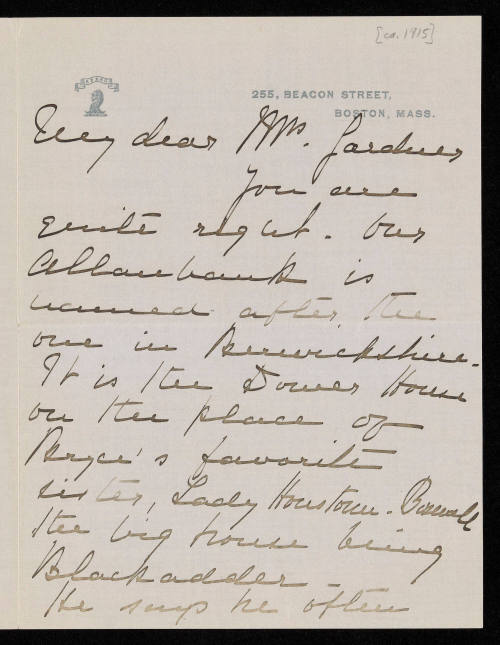 [ca. 1915]
255, BEACON STREET,
BOSTON, MASS.
My dear Mrs. Gardner
You are
quite right. Our
Allanbank is
named after the
one in Berwickshire.
It is the Dower House
on the place of
Bryce's favorite
sister, Lady Houstoun-Boswall
the big house being
Blackadder -
He says he often